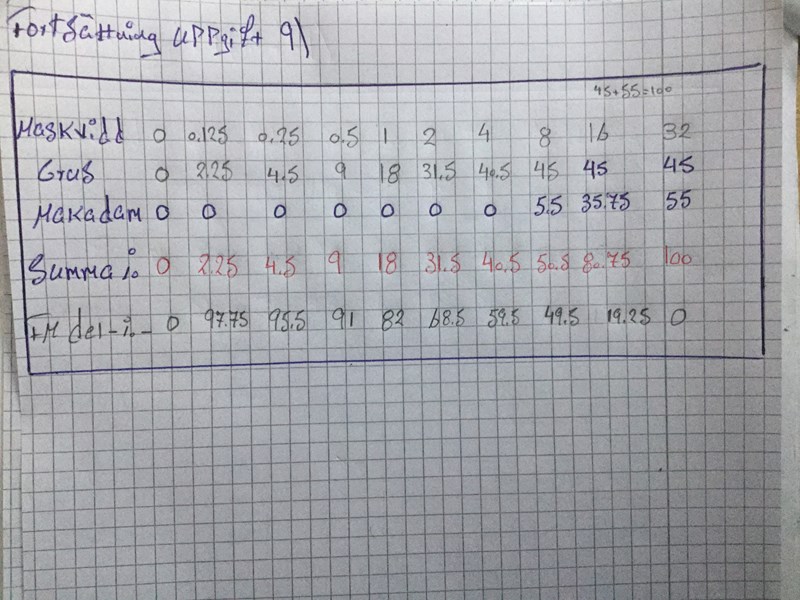 Fortsättning uppgift 9)
45+55=100
Maskvidd 0 0.125 0.25 0.5 1 2 4 8 16 32
Grus 0 2.25 4.5 9 18 31.5 40.5 45 45 45
Makadam 0 0 0 0 0 0 0 5.5 35.75 55
Summa i. 0 2.25 4.5 9 18 31.5 40.5 50.5 80.75 100
FM del-i.- 0 97.75 95.5 91 82 68.5 59.5 49.5 19.25 0